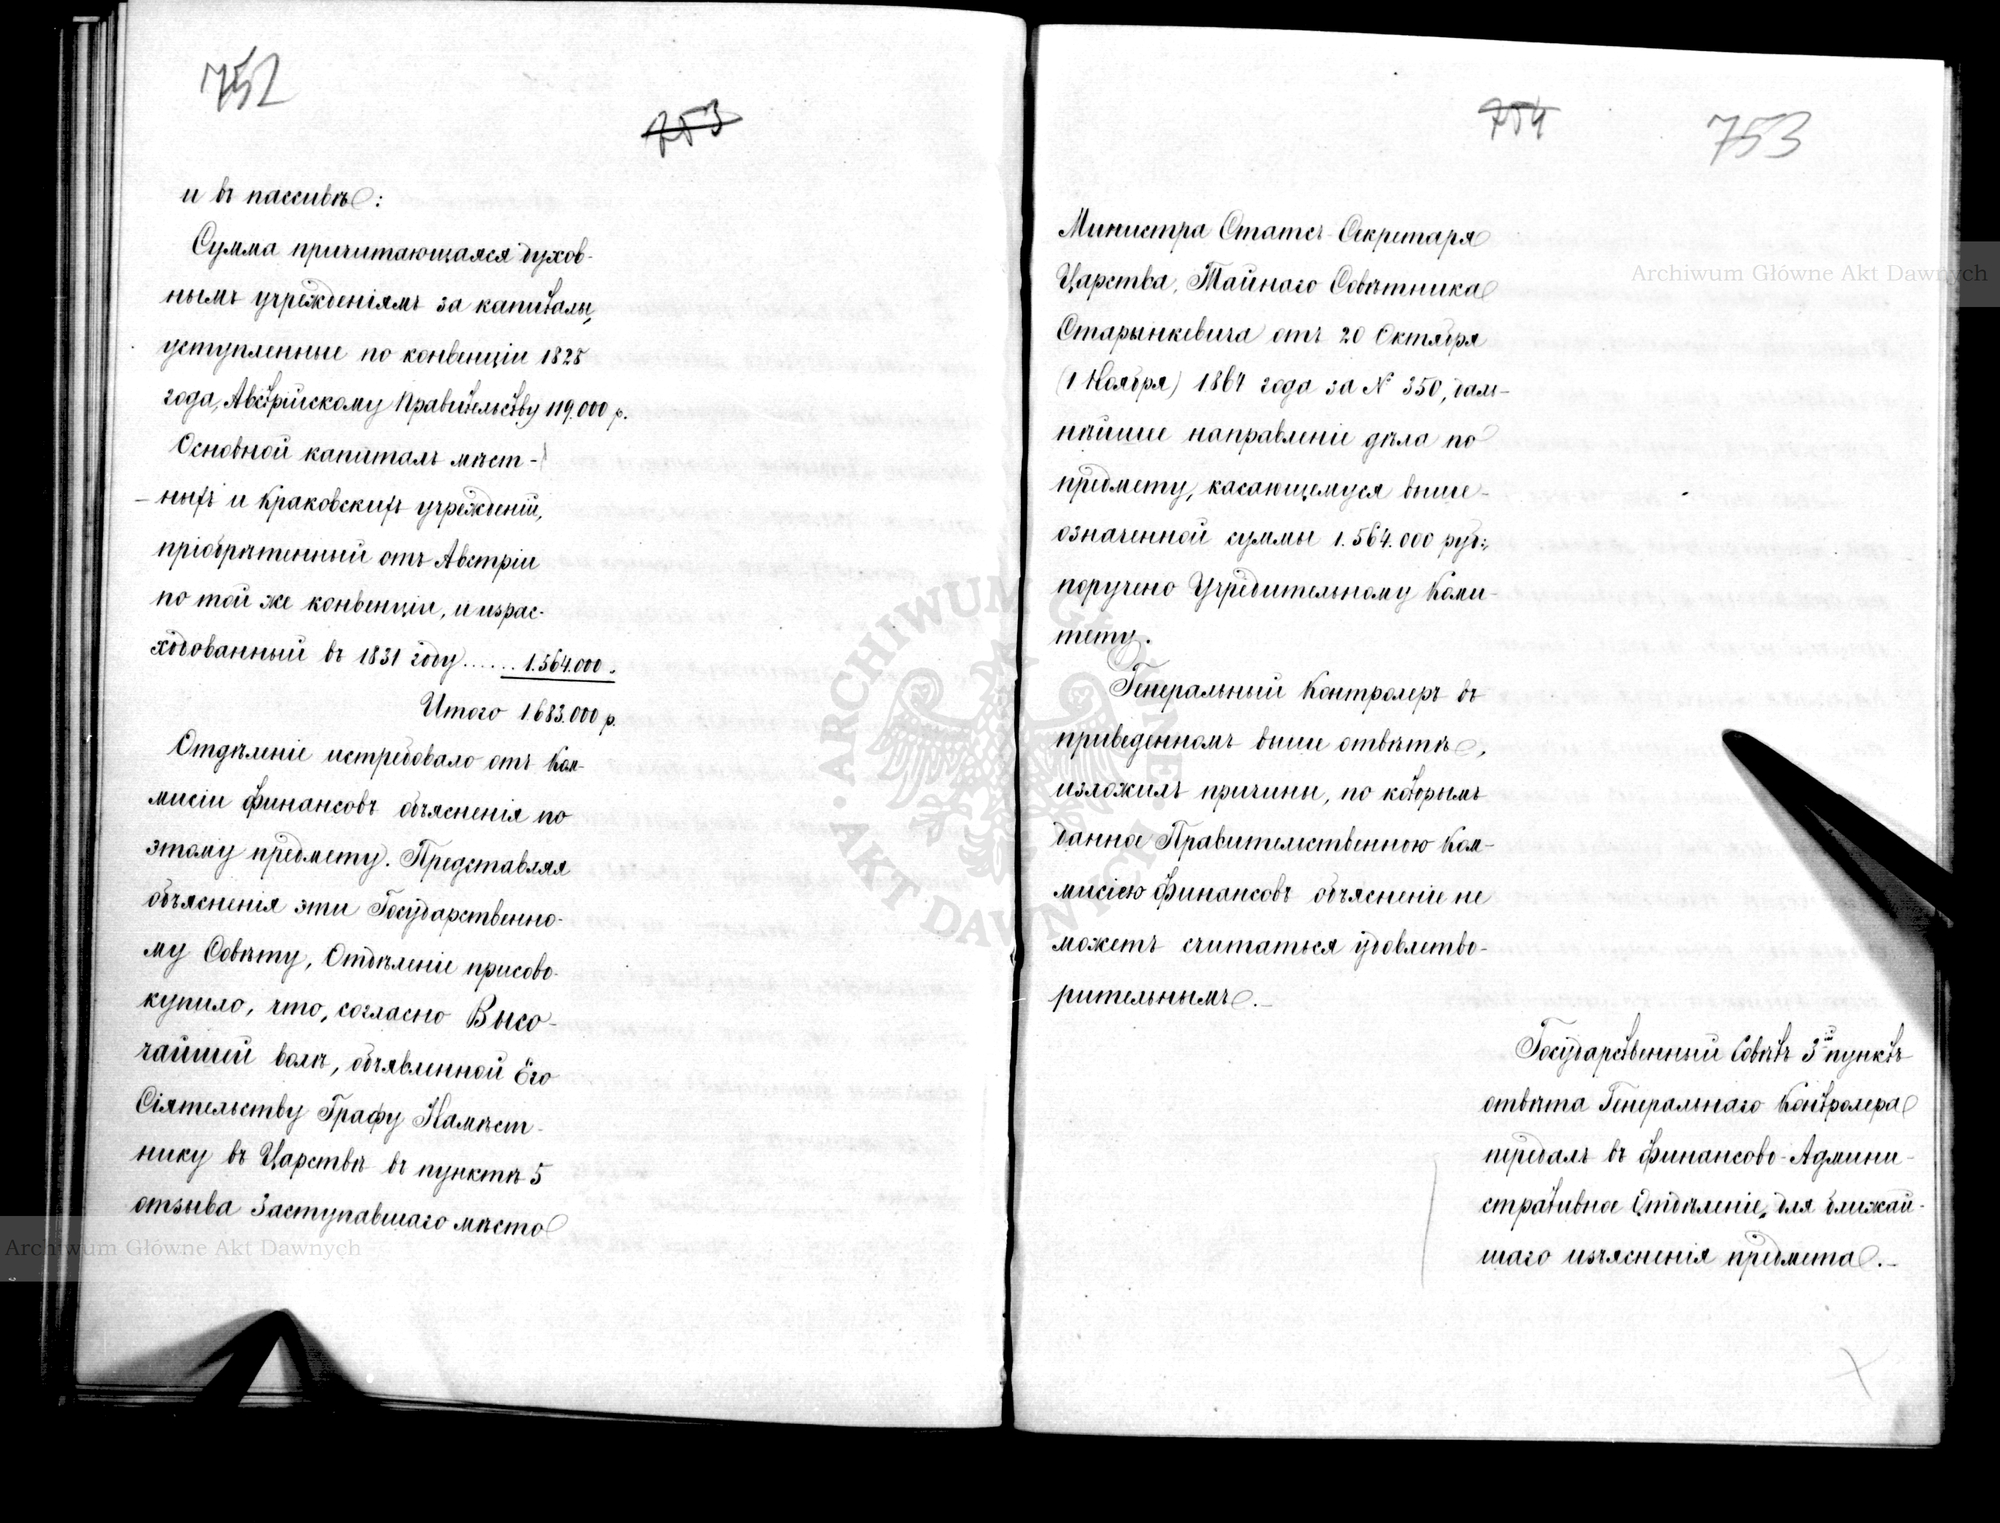 752
753
и въ пассивѣ:
Сумма причитающаяся духов-
нымъ учрежденіямъ за капиталы,
уступленные по конвенціи 1828
года, Австрійскому Правительству 119.000 р.
Основной капиталъ мѣст-
ныхъ и Краковскихъ учрежденій,
пріобрѣтенный отъ Австріи
по той же конвенціи, и израс-
ходованный въ 1831 году...... 1.564.000.
Итого 1.683.000 р.
Отдѣленіе истребовало отъ Ком-
мисіи Финансовъ объясненія по
этому предмету. Представляя
объясненія эти Государственно-
му Совѣту, Отдѣленіе присово-
купило, что, согласно Высо-
чайшей волѣ, объявленной Его
Сіятельству Графу Намѣст-
нику въ Царствѣ въ пунктѣ 5
отзыва Заступавшаго мѣсто
754
753
Министра Статсъ-Секретаря
Царства, Тайнаго Совѣтника
Старынкевича отъ 20 Октября
(1 Ноября) 1864 года за № 350, даль-
нѣйшее направленіе дѣла по
предмету, касающемуся выше-
означенной суммы 1.564.000 руб:,
поручено Учредительному Коми-
тету.
Генеральный Контролеръ въ
приведенномъ выше отвѣтѣ,
изложилъ причины, по которымъ
данное Правительственною Ком-
мисіею Финансовъ объясненіе не
можетъ считаться удовлетво-
рительнымъ.
Государственный Совѣтъ 3ій пунктъ
отвѣта Генеральнаго Контролера
передалъ въ Финансово-Админи-
стративное Отдѣленіе, для ближай-
шаго изъясненія предмета.
Archiwum Główne Akt Dawnych
Archiwum Główne Akt Dawnych
ARCHIWUM GŁÓWNE AKT DAWNYCH